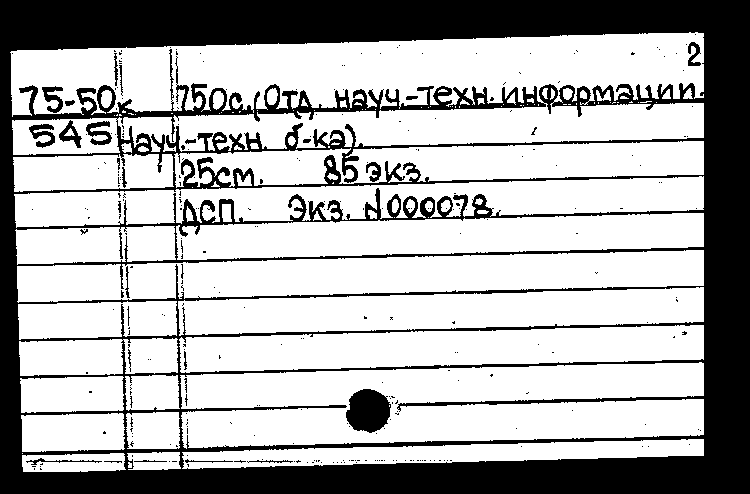 2
75-50к 750с. (Отд. науч.-техн. информации.
545 Науч.-техн. б-ка).
25см. 85 экз.
ДСП. Экз. N000078.